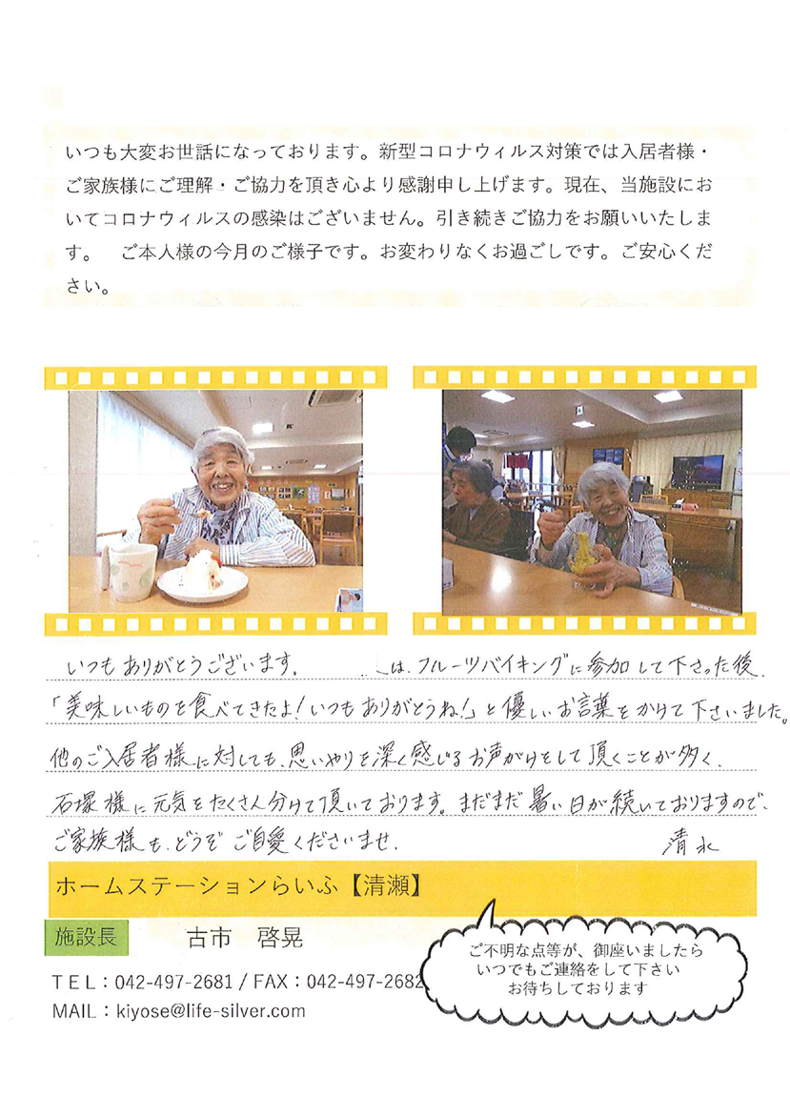 いつも大変お世話になっております。新型コロナウィルス対策では入居者様・
ご家族様にご理解・ご協力を頂き心より感謝申し上げます。現在、当施設にお
いてコロナウィルスの感染はございません。引き続きご協力をお願いいたしま
す。　ご本人様の今月のご様子です。お変わりなくお過ごしです。ご安心くだ
さい。
いつもありがとうございます。
は、フルーツバイキングに参加して下さった後、
「美味しいものを食べてきたよ！いつもありがとうね！」と優しいお言葉をかけて下さいました。
他のご入居者様に対しても、思いやりを深く感じるお声がけをして頂くことが多く、
石塚様に元気をたくさん分けて頂いております。まだまだ暑い日が続いておりますので、
ご家族様も、どうぞご自愛くださいませ。
清水
ホームステーションらいふ【清瀬】
施設長　古市　啓晃
TEL：042-497-2681 / FAX：042-497-2682
MAIL：kiyose@life-silver.com
ご不明な点等が、御座いましたら
いつでもご連絡をして下さい
お待ちしております